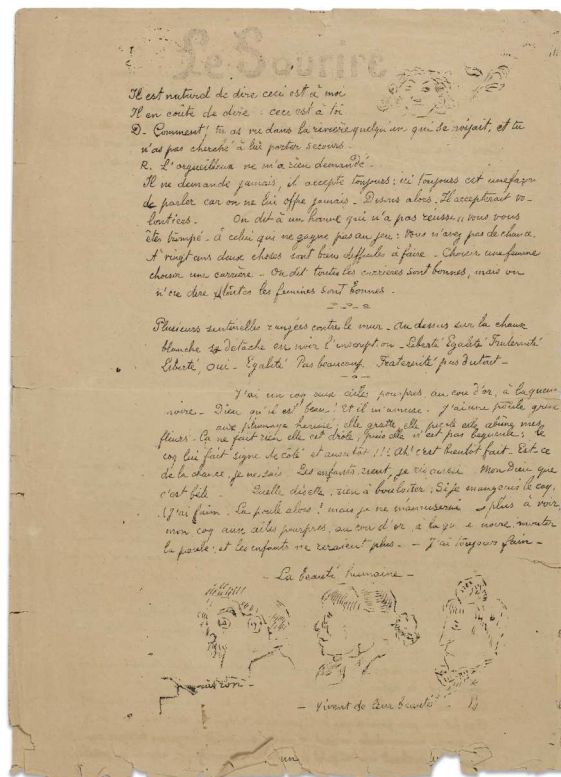 Le Sourire
Il est naturel de dire ceci est à moi
Il en coûte de dire : ceci est à toi
D. Comment! tu as vu dans la rivière quelqu'un qui se noyait, et tu
n'as pas cherché à lui porter secours.
R. L'orgueilleux ne m'a rien demandé.
Il ne demande jamais, il accepte toujours; ici toujours est une façon
de parler car on ne lui offre jamais. Disons alors. Il accepterait vo-
lontiers. On dit à un homme qui n'a pas réussi,, vous vous
êtes trompé. à celui qui ne gagne pas au jeu: Vous n'avez pas de chance.
A vingt ans deux choses sont bien difficiles à faire. Choisir une femme
choisir une carrière. On dit toutes les carrières sont bonnes, mais on
n'ose dire toutes les femmes sont bonnes.
Plusieurs sentinelles rangées contre le mur. au dessus sur la chaux
blanche se détache en noir l'inscription. Liberté Egalité Fraternité
Liberté, oui. Egalité Pas beaucoup, Fraternité pas du tout.
J'ai un coq aux ailes pourpres, au cou d'or, à la queue
noire. Dieu qu'il est beau! Et il m'amuse. J'ai une poule grise
aux plumage hérissé; elle gratte, elle picote elle abîme mes
fleurs. Ça ne fait rien elle est drôle, puis elle n'est pas bégueule; le
coq lui fait signe de côté et aussitôt!!! Ah! c'est bientôt fait. Est ce
de la chance, je ne sais. Les enfants rient, je ris aussi Mon Dieu que
c'est bête. Quelle disette, rien à boulotter; si je mangeais le coq.
J'ai faim. La poule alors! mais je ne m'amuserai plus à voir
mon coq aux ailes pourpres, au cou d'or à la queue noire, monter
la poule; et les enfants ne riraient plus. - J'ai toujours faim -
- La beauté humaine -
- vivent de leur beauté -